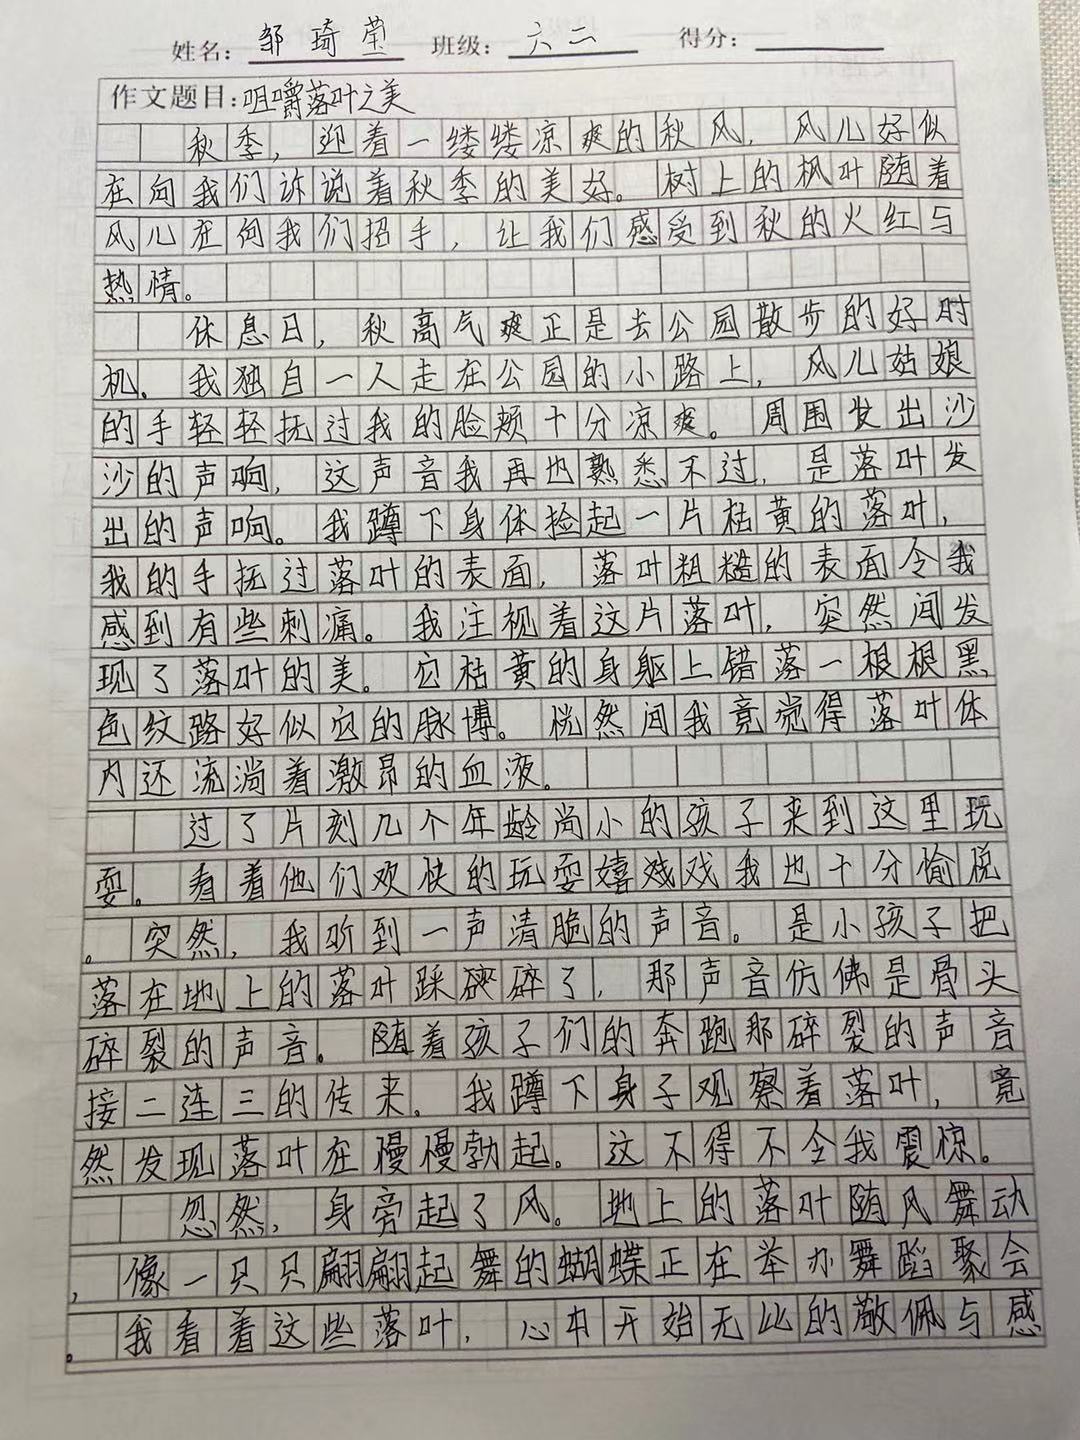 姓名：邹琦莹 班级：六二 得分：
作文题目：咀嚼落叶之美
秋季，迎着一缕缕凉爽的秋风，风儿好似
在向我们诉说着秋季的美好。树上的枫叶随着
风儿在向我们招手，让我们感受到秋的火红与
热情。
休息日，秋高气爽正是去公园散步的好时
机。我独自一人走在公园的小路上，风儿姑娘
的手轻轻抚过我的脸颊十分凉爽。周围发出沙
沙的声响，这声音我再也熟悉不过，是落叶发
出的声响。我蹲下身体捡起一片枯黄的落叶，
我的手抚过落叶的表面，落叶粗糙的表面令我
感到有些刺痛。我注视着这片落叶，突然间发
现了落叶的美。它枯黄的身躯上错落一根根黑
色纹路好似它的脉博。恍然间我竟觉得落叶体
内还流淌着激昂的血液。
过了片刻几个年龄尚小的孩子来到这里玩
耍。看着他们欢快的玩耍嬉戏戏我也十分愉悦
。突然，我听到一声清脆的声音。是小孩子把
落在地上的落叶踩碎了，那声音仿佛是骨头
碎裂的声音。随着孩子们的奔跑那碎裂的声音
接二连三的传来。我蹲下身子观察着落叶，竟
然发现落叶在慢慢勃起。这不得不令我震惊。
忽然，身旁起了风。地上的落叶随风舞动
，像一只只翩翩起舞的蝴蝶正在举办舞蹈聚会
。我看着这些落叶，心中开始无比的敬佩与感